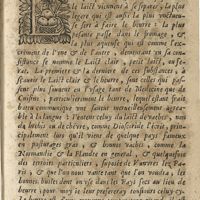 le laict viennent à se separer, la plus
legere qui est aussi la plus onctueu-
se sert à faire le beurre : la plus
pesante passe dans le fromage, &
la plus aqueuse qui est comme l'ex-
crement de l'vne & de l'autre, demeurant en sa con-
sistance se nomme le Laict clair,
La premiere & la derniere de ces substances, à
sçauoir le Laict clair & le beurre, sont celles qui pas-
sent plus souuent en l'vsage tant de Medecine que de
Cuisine, particulierement le beurre, lequel entre
vne infinité de mets qui soyent merueilleusement agrea-
ble à la langue : i'entens celuy du laict de vaches, non
de brebis ou de chévre, comme Dioscoride l'écrit, prin-
cipalement lors qu'il vient de quelque pays fameux
en pasturages gras, & bonnes vaches, comme la
Normandie & la Flandre en general, & quelques
territoires particuliers, supposé de Vanvres lez Pa-
ris, & que l'on nous vante tant que l'on voudra, les
bonnes butes dont on vse dans les Pays bas au lieu de
beurre pour moy je leur prefereray tousiours celuy cy.